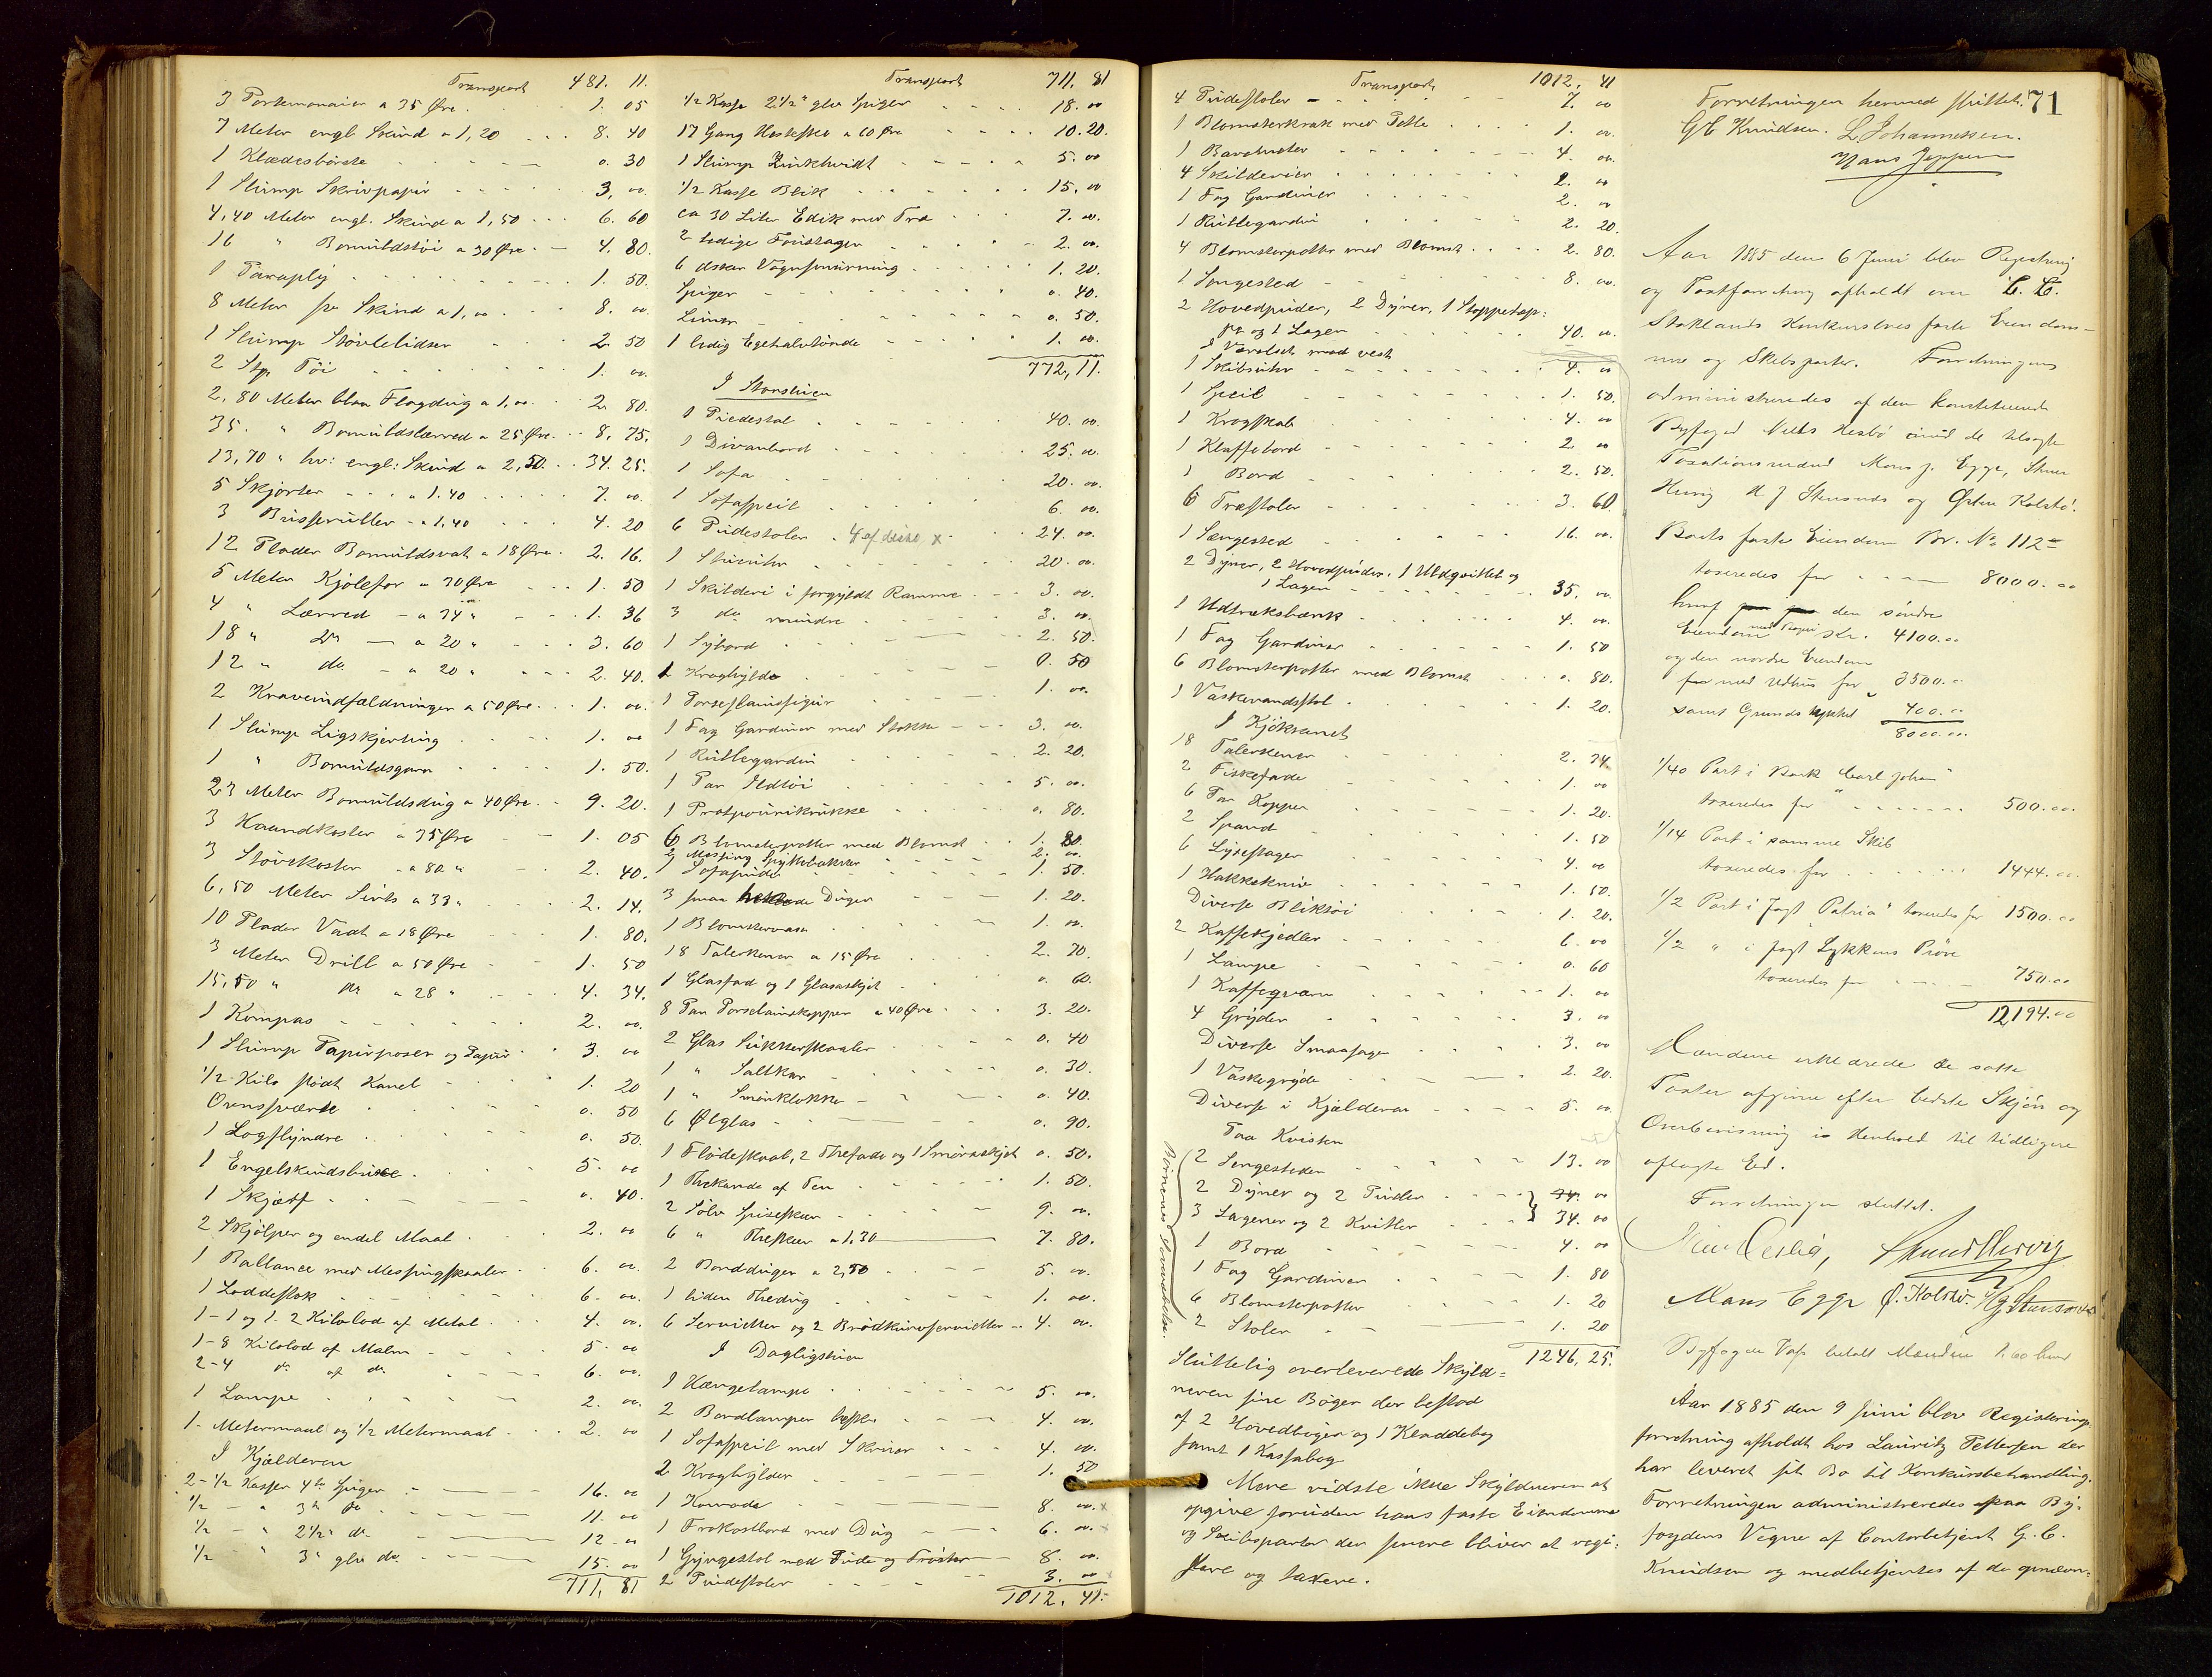 Transport 481. 11.
3 Portemonaier a 35 Øre. 1. 05
7 Meter engl. Skind a 1,20 8. 40
1 Klædesbörste 0. 30
1 Slump Skrivpapir 3, 00.
4,40 Meter engl. Skind a 1,50 6. 60
16 " Bomuldstöi a 30 Øre. 4. 80.
1 Paraply 1. 50.
8 Meter Skind a 1,00 8. 00
1 Slump Støvlelidser 2. 50
2 Stp. Töi 1. 00.
2,80 Meter blaa Flagdug a 1,00 2. 80.
35. " Bomuldslærred a 25 Øre. 8. 75.
13,70 " hv: engl: Skind a 2,50. 34. 25.
5 Skjorter a 1.40 7. 00.
3 Busseruller a 1,40 4. 20
12 Plader Bomuldsvat a 18 Øre. 2. 16.
5 Meter Kjolefor a 30 Øre 1. 50
4 " Lærred a 34 " 1. 36
18 " do a 20 " 3. 60
12 " do. a 20 " 2. 40.
2 Kraveindfældninger a 50 Øre. 1. 00.
1 Slump Ligskjorting 1. 00
1 " Bomuldsgarn 1. 50.
23 Meter Bomuldsdug a 40 Øre. 9. 20.
3 Haandkoster a 35 Øre 1. 05
3 Støvekoster a 80 " 2. 40.
6,50 Meter Sirts a 33 " 2. 14.
10 Plader Vadt a 18 Øre 1. 80.
3 Meter Drill a 50 Øre 1. 50
15,50 " do a 28 " 4. 34.
1 Kompas 2. 00.
1 Slump Papirposer og Papir 3. 00
1/2 Kilo stødt Kanel 1. 20
0. 50
1 Logflyndre 0. 50.
1 5. 00
1 Skjærf 0. 40.
2 Skjølper og endel Maal 2. 00
1 Ballance med Messingskaaler 6. 00.
1 Loddestok 6. 00.
1-1 og 1. 2 Kilolod af Metal 4. 00.
1-8 Kilolod af Malm 5. 00
2-4 do af do. 6. 00.
1 Lampe 2. 00.
1- Metermaal og 1/2 Metermaal 2. 00
I Kjælderen
2-1/2 Kasser 4" Spiger 16. 00
1/2 - " 3" do 11. 00
1/2 - " 2 1/2" do 12. 00
1/2 " 3" glv do. 15. 00
711. 81
Transport 711. 81
1/2 Kasse 2 1/2" glv Spiger 18. 00
17 Gang Hestesko a 60 Øre 10. 20.
1 Slump Zinkhvidt 5. 00
1/2 Kasse Blik 15. 00
ca 30 Liter Edik med Træ 7. 00.
2 ledige Foustager 2. 00.
6 dsker Vognsmurning 1. 20.
Spiger 0. 40.
Limer 0. 50.
1 ledig Egehalvtønde 1. 00.
772, 11.
I Storstuen
1 Piedestal 40. 00.
1 Divanbord 25. 00.
1 Sofa 20. 00.
1 Sofaspeil 6. 00.
6 Pudestoler 4 af disse x 24. 00.
1 Stueuhr 20. 00.
1 Skilderi i forgyldt Ramme 3. 00.
3 do mindre 3. 00.
1 Sybord 2. 50.
1 Kroghylde 0. 50
1 Porselainsfigur 1. 00.
1 Fag Gardiner med Stokke 3. 00.
1 Rullegardin 2. 20.
1 Par Ildtöi 5. 00.
1 Potpourikrukke 0. 80.
6 Blomsterpotter med Blomst 1. 80.
2 Messing Spyttebakker 2. 00.
1 Sofapude 1. 50.
3 smaa heklede Duger 1. 20.
1 Blomstervase 1. 00.
18 Talerkener a 15 Øre 2. 70.
1 Glasfad og 1 Glasaskjet 0. 60.
8 Par Porselainskopper a 40 Øre 3. 20.
2 Glas Sukkerskaaler 0. 40
1 " Saltkar 0. 30.
1 " Smørklokke 0. 40.
6 Ølglas 0. 90.
1 Flödeskaal, 2 Thefade og 1 Smøraskjet 0. 50.
1 Thekande af Ten 1. 50.
2 Sölv Spiseskeer 9. 00.
6 " Theskeer a 1,30 7. 80.
2 Bordduger a 2,50 5. 00.
1 liden Thedug 1. 00.
6 Servietter og 2 Brødkurvservietter 4. 00.
I Dagligstuen
1 Hængelampe 5. 00.
2 Bordlamper 4. 00.
1 Sofaspeil med Skruer 4. 00.
2 Kroghylder 1. 50
1 Komode 8. 00. x
1 Frokostbord med Dug 6. 00. x
1 Gyngestol med Pude og Trøster 8. 00.
2 Pudestoler 3. 00 x
1012. 41.
Transport 1012. 41
4 Pudestoler 7. 00
1 Blomsterkrak med Potte 1. 00.
1 Barometer 4. 00.
4 Skilderier 2. 00
1 Fag Gardiner 2. 00
1 Rullegardin 2. 20.
4 Blomsterpotter med Blomst 2. 80.
1 Sengested 8. 00.
2 Hovedpuder, 2 Dyner, 1 Stoppetæp:
pe og 1 Lagen 40. 00.
I Værelset mod vest
1 Skibsuhr 4. 00
1 Speil 1. 50.
1 Krogskab 4. 00
1 Klaffebord 2 00
1 Bord 2. 50.
6 Træstoler 3. 60.
1 Sængested 16. 00.
2 Dyner, 2 Hovedpuder, 1 Uldqvittel og
1 Lagen 35. 00.
1 Udtræksbænk 4. 00.
1 Fag Gardiner 1. 50
6 Blomsterpotter med Blomst 0. 80.
1 Vaskevandsstol 1. 20.
I Kjökkenet
18 Talerkener 2. 34
2 Fiskefade 1. 00
6 Par Kopper 1. 20.
2 Spand 1. 50
6 Lysestager 4. 00
1 Hakkekniv 1. 50.
Diverse Bliktöi 1. 20.
2 Kaffekjedler 6. 00
1 Lampe 0. 60
1 Kaffeqværn 1. 00
4 Gryder 3. 00
Diverse Smaasager 3. 00
1 Vaskegryde 2. 20.
Diverse i Kjælderen 5. 00.
Paa Kvisten
Børnenes
2 Sengesteder 13. 00
2 Dyner og 2 Puder 34. 00
3 Lagener og 2 Kvitler 34. 00
1 Bord 4. 00
1 Fag Gardiner 1. 80
6 Blomsterpotter 1. 20
2 Stoler 1. 20
1246, 25.
Sluttelig overleverede Skyld=
neren sine Bøger der bestod
af 2 Hovedbøger og 1 Kladdebog
samt 1 Kassabog
Mere vidste ikke Skyldneren at
opgive foruden hans faste Eiendomme
og Skibsparter der senere bliver at regi:
strere og taxere.
Forretningen hermed sluttet. 71
GC Knudsen. L Johannesen.
Hans Jeppesen
Aar 1885 den 6 Juni blev Registrering
og Taxtforretning afholdt over C. C.
Stoklands Konkursboes faste Eiendom-
me og Skibsparter. Forretningen
administreredes af den konstituerede
Byfoged Niels Hesbø med de tilsagte
Taxationsmænd Mons J. Egge,
og Østen Kolstø.
Boets faste Eiendom Br. No 112
taxeredes for 8000. 00
hvoraf den søndre
Eiendom Kr. 4100.00
og den nordre Eiendom
med Udhus for " 3500.00
samt Grundstykket 400.00
8000.00.
1/40 Part i Bark "Carl Johan"
taxeredes for 500.00.
1/14 Part i samme Skib
taxeredes for 1444.00.
1/2 Part i Jagt "Patria" taxeredes for 1500.00
1/2 " i Jagt Lykkens Prøve
taxeredes for 750.00
12,194.00
Mændene erklærede de satte
Taxter afgivne efter bedste Skjøn og
Overbevisning i Henhold til tidligere
aflagte Ed.
Forretningen sluttet.
Mons Egge Ø. Kolstø.
Byfogden betalt Mændene 1,60 hver
Aar 1885 den 9 Juni blev Registrerings
forretning afholdt hos Lauritz Pettersen der
har leveret sit Bo til Konkursbehandling.
Forretningen administreredes paa By:
fogdens Vegne af Contorbetjent G. C.
Knudsen og medbetjentes af de opnævn: